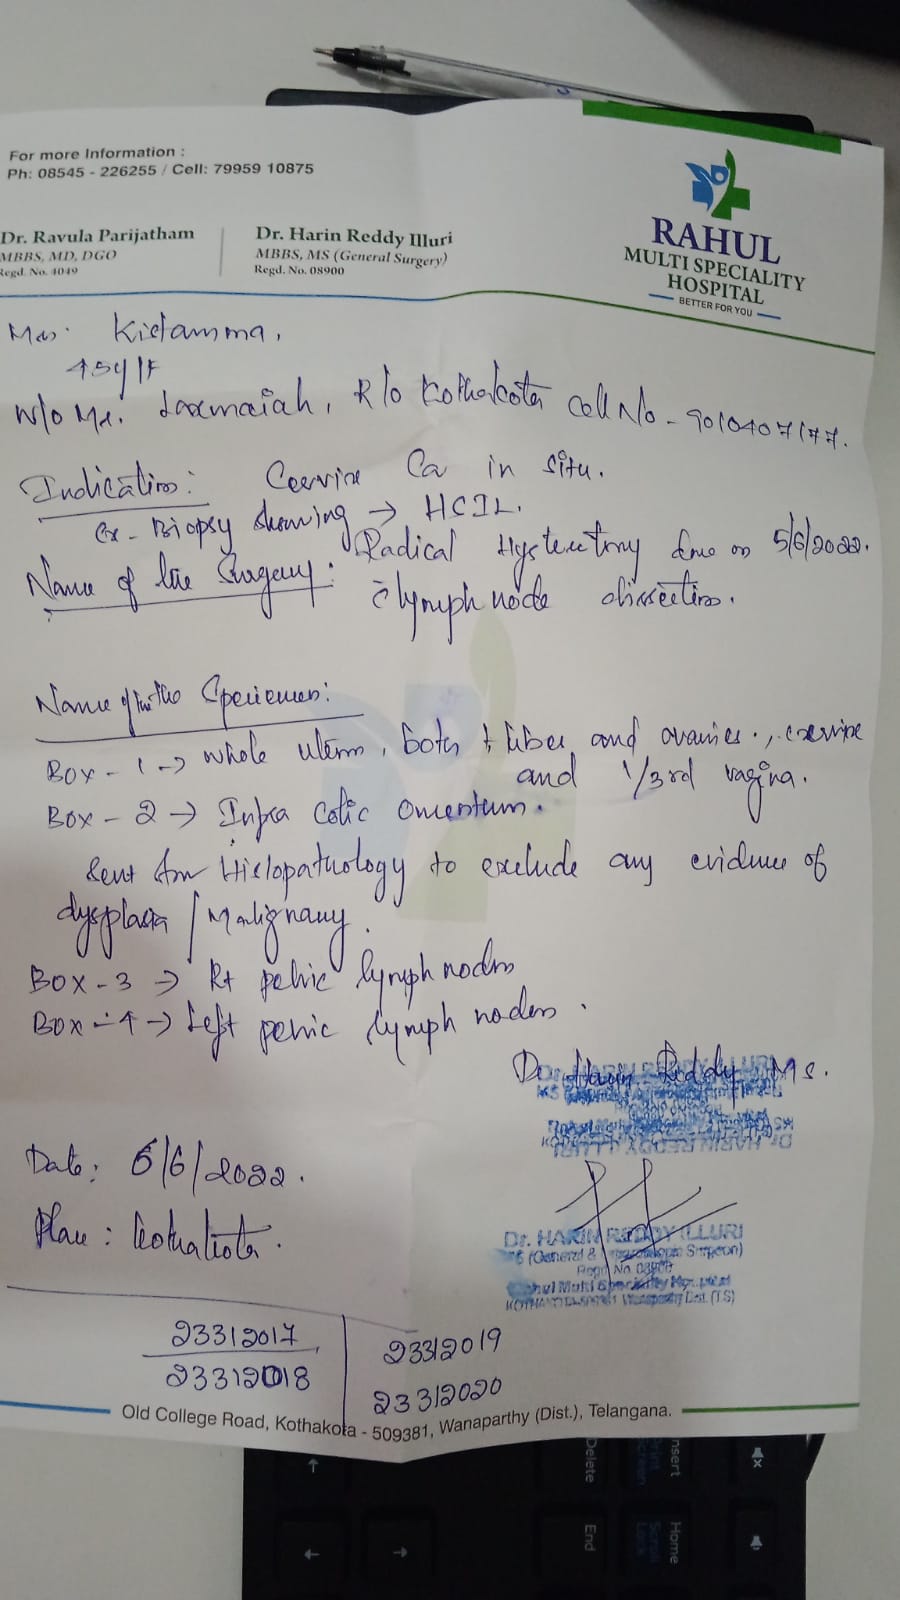 For more Information :
Ph: 08545 - 226255 / Cell: 79959 10875
Dr. Ravula Parijatham
MBBS, MD, DGO
Regd. No. 4049
Dr. Harin Reddy Illuri
MBBS, MS (General Surgery)
Regd. No. 08900
RAHUL
MULTI SPECIALITY
HOSPITAL
BETTER FOR YOU
Mrs. Kistamma,
45y/F
W/o Mr. Laxmaiah, R/o Kothakota Cell No - 9010407177.
Indication: Ca in situ.
Biopsy showing → HSIL.
Name of the Surgery: Radical done on 5/6/2022.
c̄ lymph node dissection.
Name of the Specimen:
Box - 1 → whole uterus, both tubes and ovaries.,
and 1/3rd vagina.
Box - 2 → Infra Colic Omentum.
Sent for Histopathology to exclude any evidence of
dysplasia / Malignany.
Box - 3 → Rt pelvic lymph nodes
Box - 4 → Left pelvic lymph nodes.
Dr. Harin Reddy MS.
Date: 6/6/2022.
Place: Kothakota.
Dr. HARIN REDDY ILLURI
Regd. No. 08900
Rahul Multi Speciality Hospital
23312017,
23312018
23312019
23312020
Old College Road, Kothakota - 509381, Wanaparthy (Dist.), Telangana.
Delete
End
Insert
Print
Screen
Home
Scroll
Lock